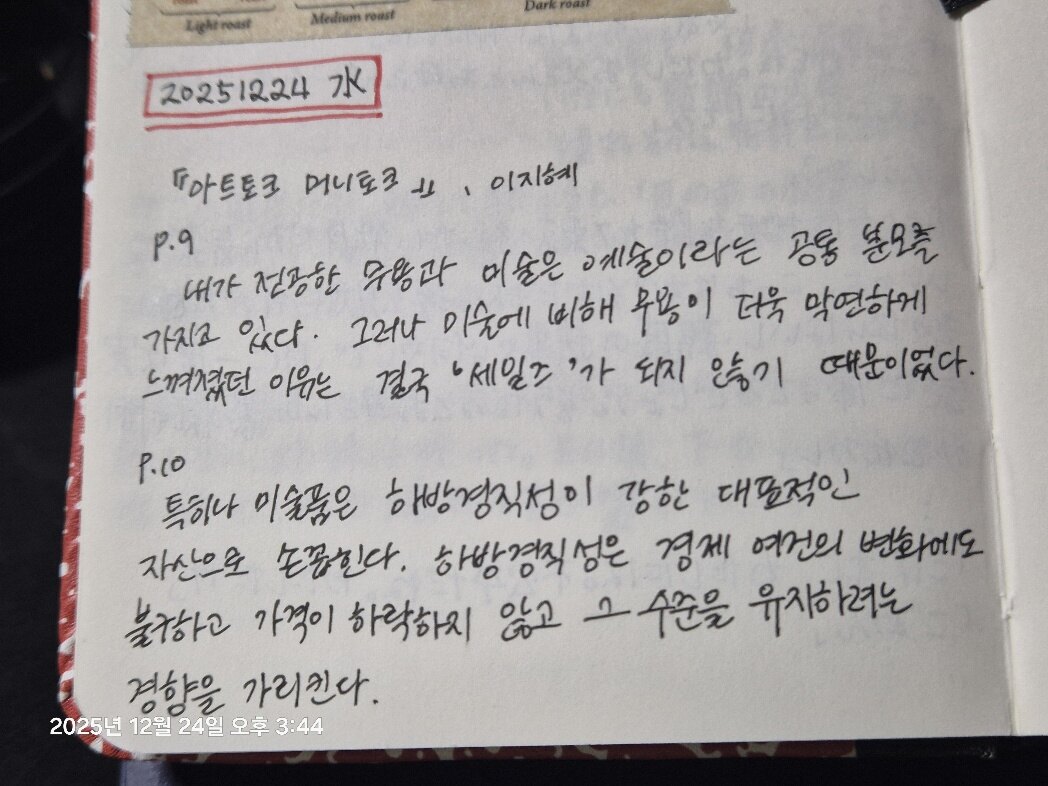 Light roast
Medium roast
Dark roast
20251224 水
『아트토크 머니토크』, 이지혜
P.9
내가 전공한 무용과 미술은 예술이라는 공통 분모를
가지고 있다. 그러나 미술에 비해 무용이 더욱 막연하게
느껴졌던 이유는 결국 '세일즈'가 되지 않기 때문이었다.
P.10
특히나 미술품은 하방경직성이 강한 대표적인
자산으로 손꼽힌다. 하방경직성은 경제 여건의 변화에도
불구하고 가격이 하락하지 않고 그 수준을 유지하려는
경향을 가리킨다.
2025년 12월 24일 오후 3:44